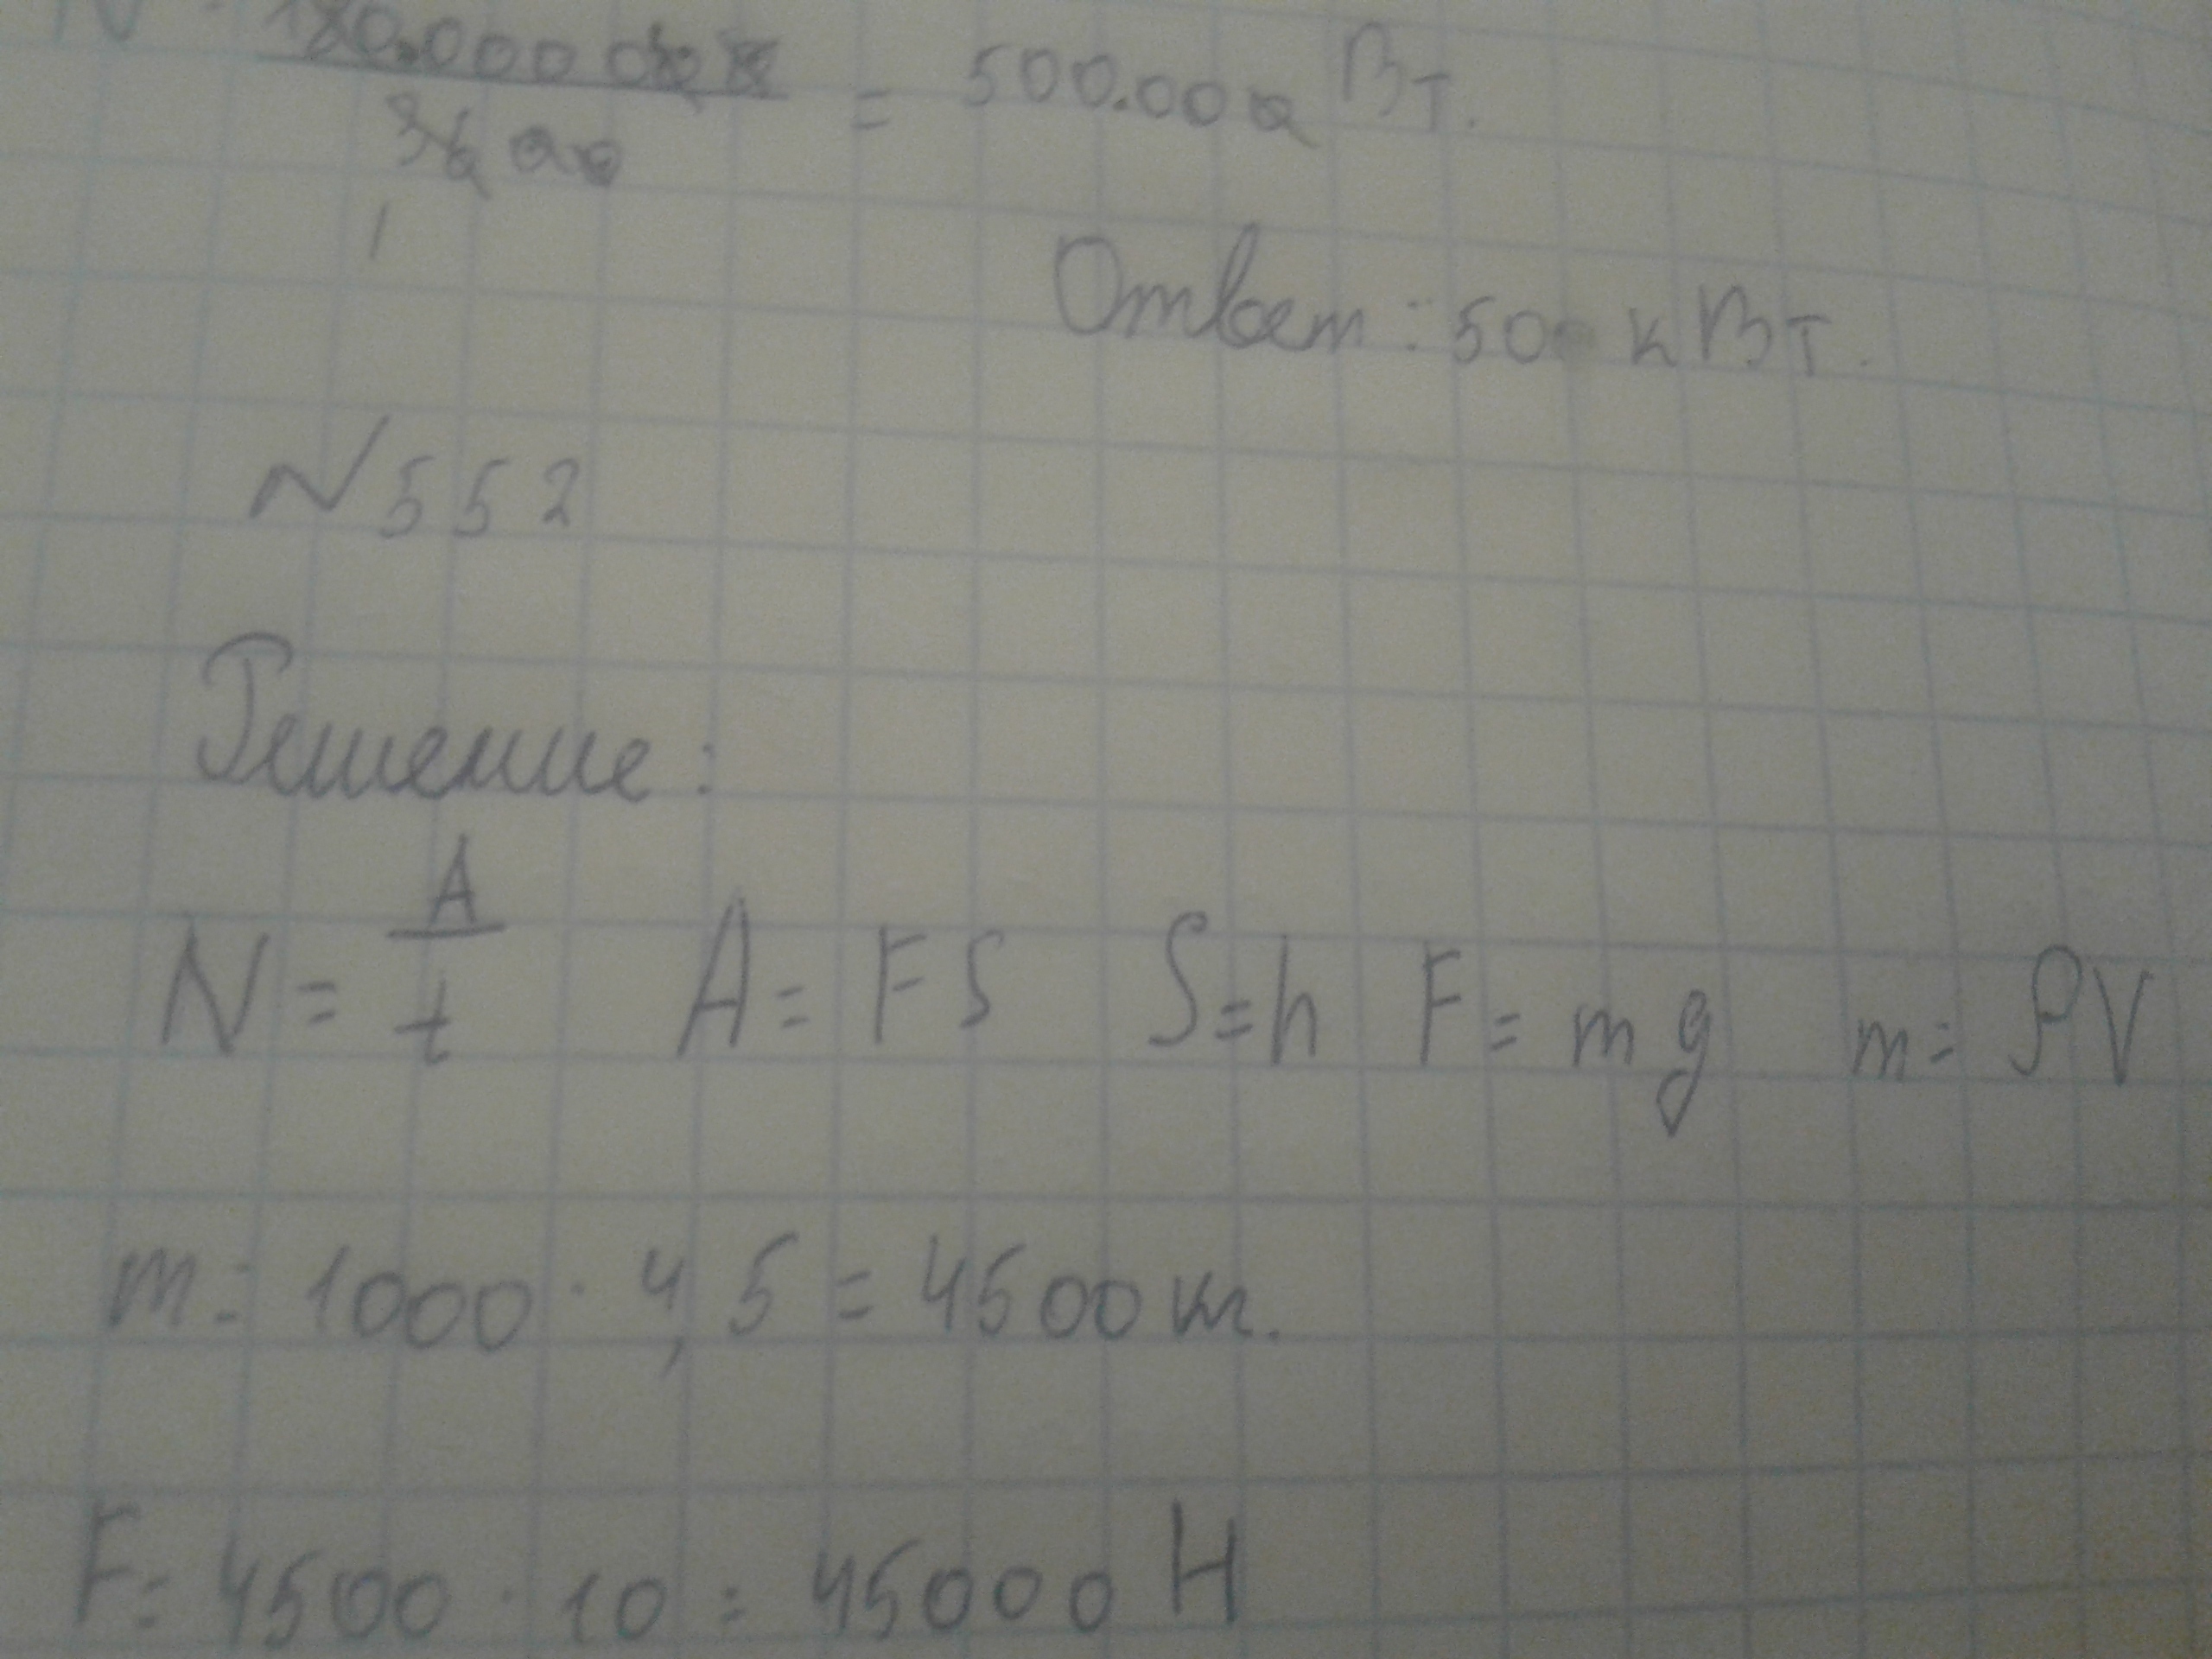 = 500.000 Вт.
Ответ: 500 кВт.
N 552
Решение:
N = A/t A = FS S = h F = mg m = ρV
m = 1000 · 4,5 = 4500 кг.
F = 4500 · 10 = 45000 Н